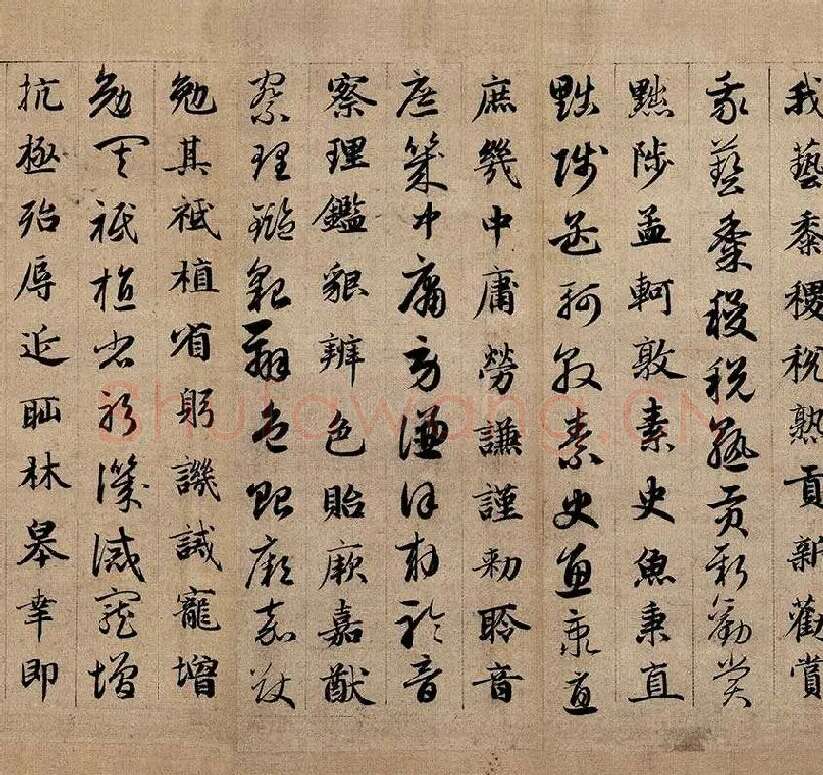 我藝黍稷税熟貢新勸賞
我藝黍稷税熟貢新勸賞
黜陟孟軻敦素史魚秉直
黜陟孟軻敦素史魚秉直
庶幾中庸勞謙謹勑聆音
庶幾中庸勞謙謹勑聆音
察理鑑貌辨色貽厥嘉猷
察理鑑貌辨色貽厥嘉猷
勉其祗植省躬譏誡寵增
勉其祗植省躬譏誡寵增
抗極殆辱近恥林皋幸即
Shufawang.CN